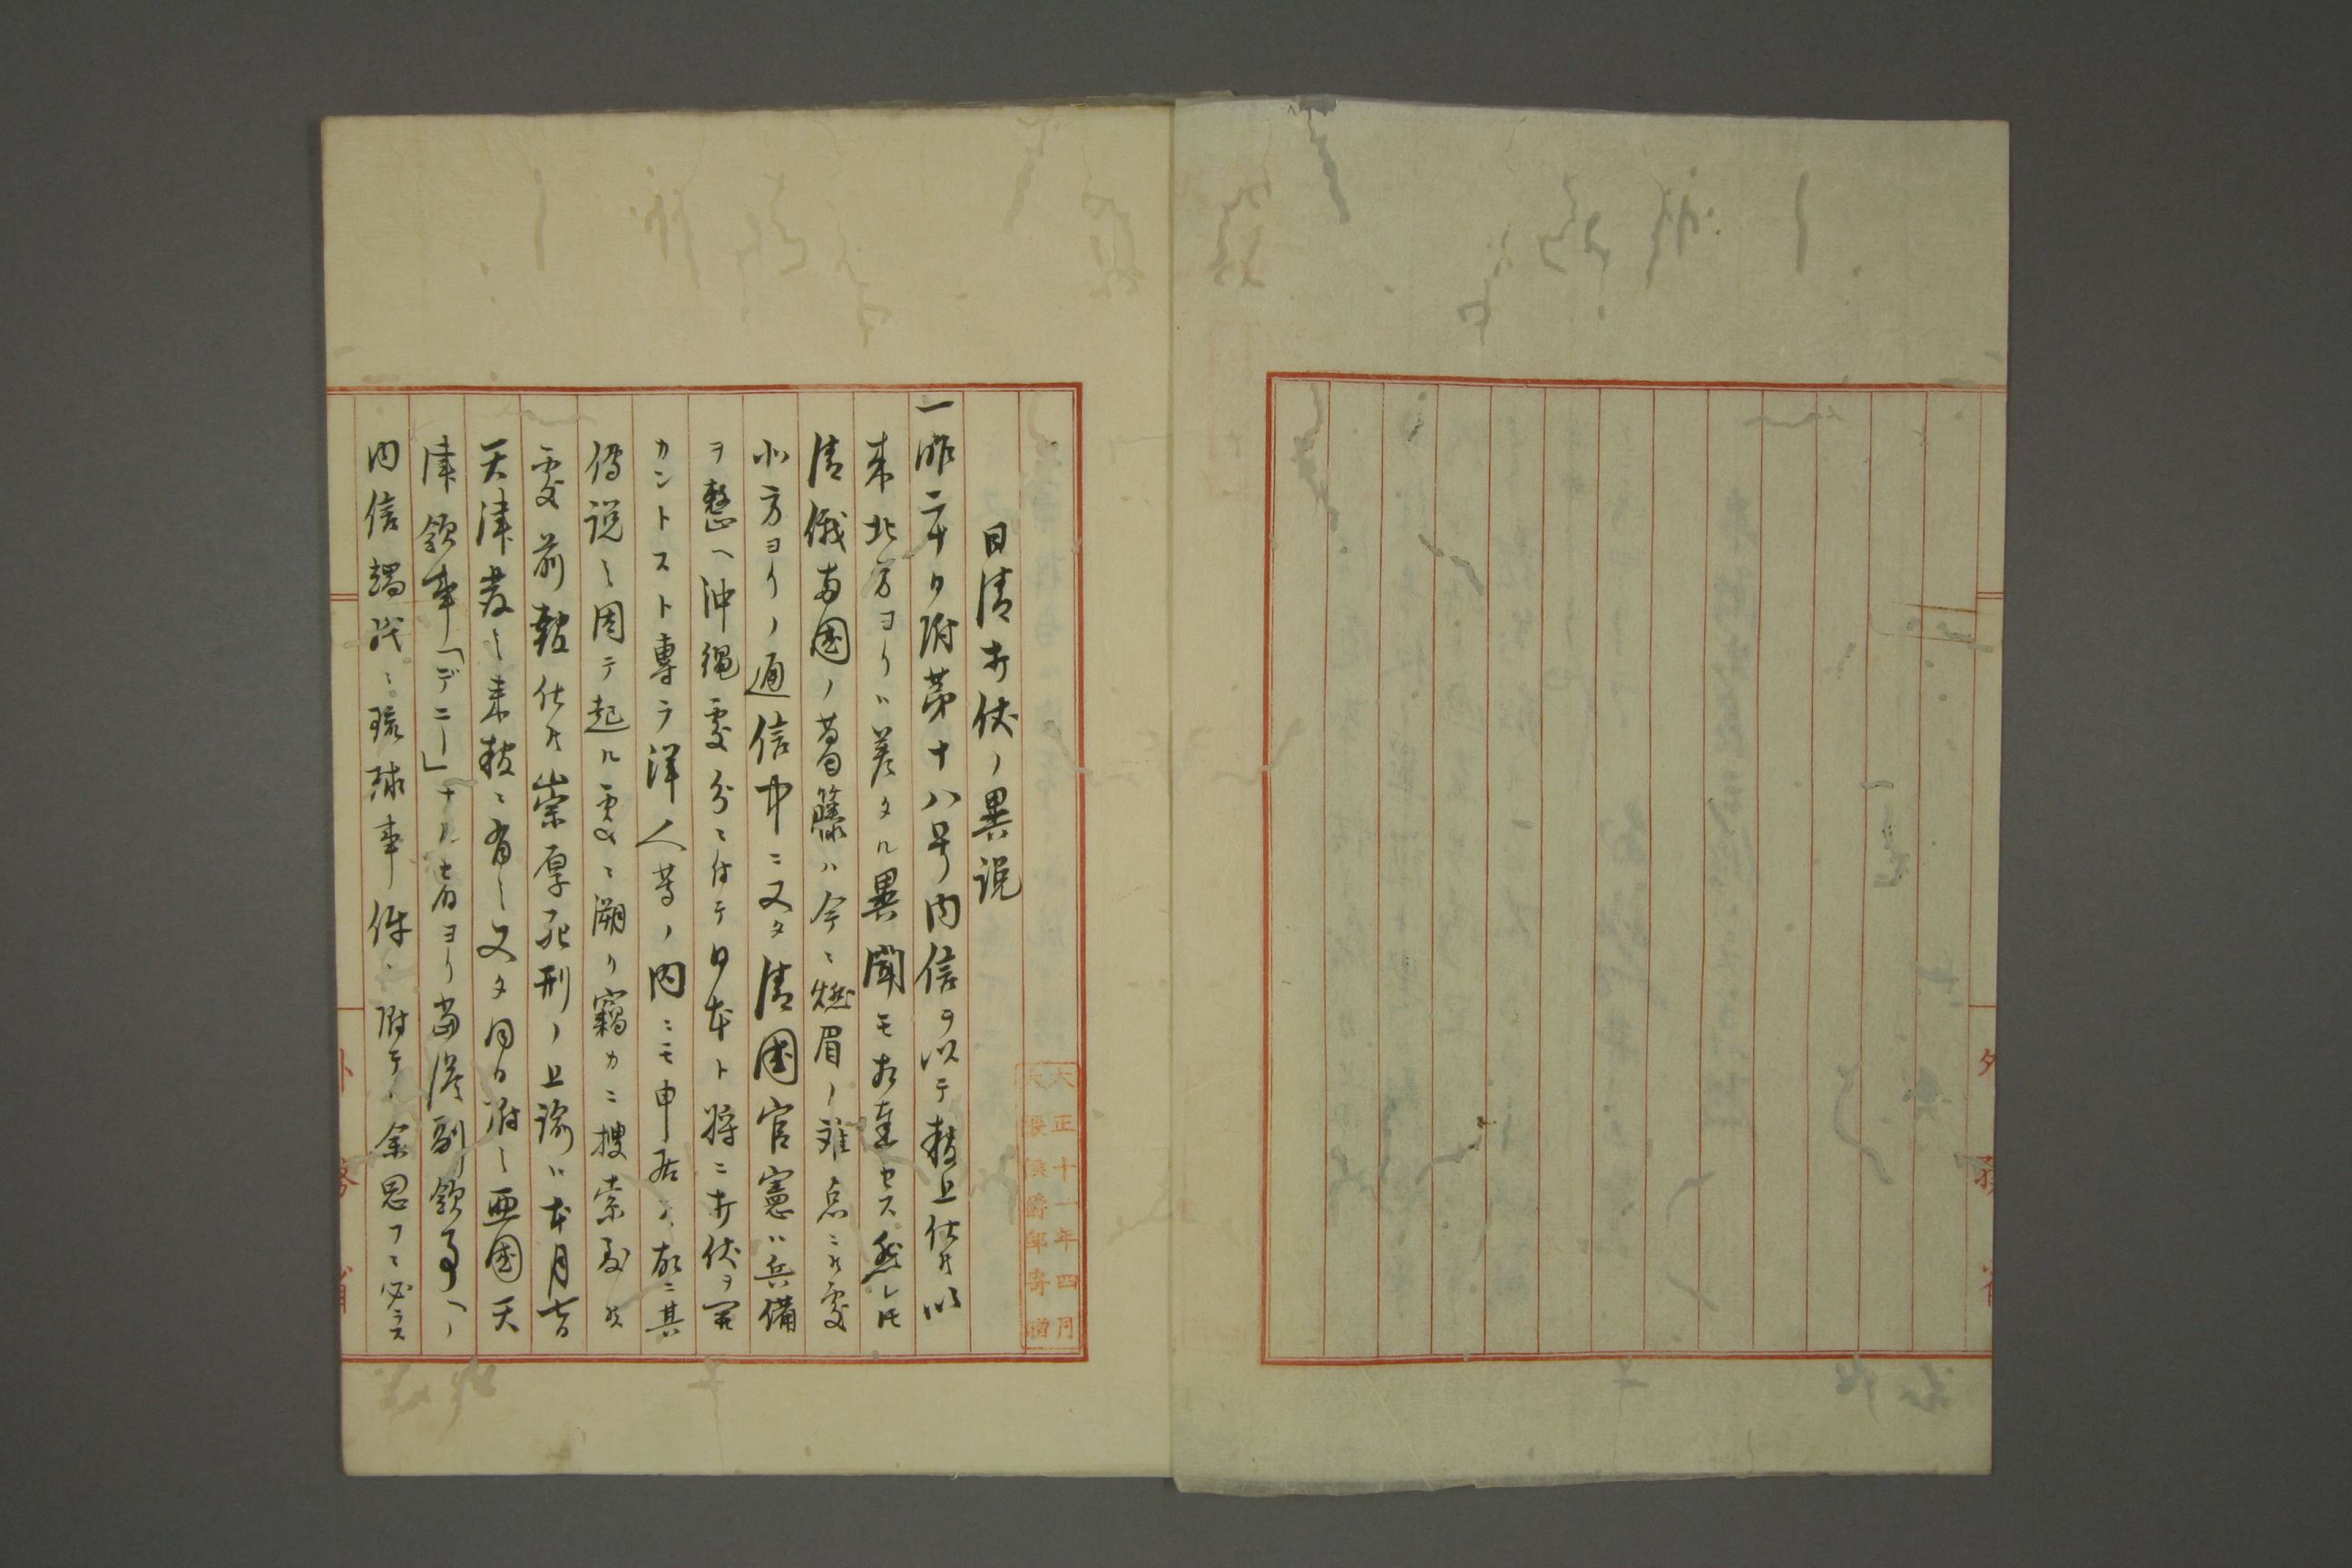 日清交伏ノ異説
一昨二十日附第十八号内信ヲ以テ報上仕候以
来北方ヨリハ差タル異聞モ相達セス然レ𪜈
清俄両国ノ葛籐ハ今ニ燃眉ノ難点ニ候處
北方ヨリノ通信中ニ又タ清國官憲ハ兵備
ヲ整ヘ沖縄處分ニ付テ日本ト将ニ交伏ヲ開
カントスト専ラ洋人等ノ内ニモ申居候故ニ其
傳説之因テ起ル處ニ溯リ竊カニ搜索致候
處前報仕候崇厚死刑ノ上諭ハ本月七日
天津發之来報ニ有之又タ同日附之亜国天
津領事「デニー」ナル者ヨリ當港副領事ヘノ
内信端ニ琉球事件ニ附テノ余思フニ必ラス
大正十一年四月
大隈侯爵邸寄贈
外務省
外務省